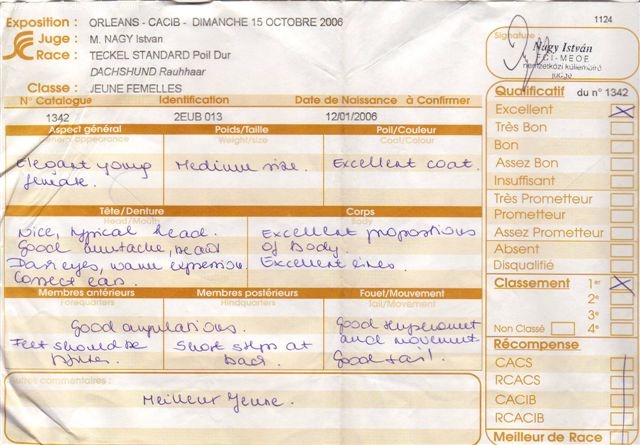 Exposition : ORLEANS - CACIB - DIMANCHE 15 OCTOBRE 2006
1124
Juge : M. NAGY Istvan
Race : TECKEL STANDARD Poil Dur
DACHSHUND Rauhhaar
Classe : JEUNE FEMELLES
Signature
Nagy István
FCI-MEOE
nemzetközi küllembíró
N° Catalogue Identification Date de Naissance à Confirmer
1342 2EUB 013 12/01/2006
Aspect général Poids/Taille Poil/Couleur
General appearance Weight/size Coat/Colour
Elegant young Medium size. Excellent coat.
female.
Tête/Denture Corps
Head/Mouth Body
Nice, typical head. Excellent proportions
Good mustache, beard of body.
Dark eyes, warm expression. Excellent lines.
Correct ears.
Membres antérieurs Membres postérieurs Fouet/Mouvement
Forequarters Hindquarters Tail/Movement
Good angulations. Good temperament
Feet should be Short steps at and movement
back. Good tail!
Autres commentaires :
Meilleur Jeune.
Qualificatif du n° 1342
Excellent X
Très Bon
Bon
Assez Bon
Insuffisant
Très Prometteur
Prometteur
Assez Prometteur
Absent
Disqualifié
Classement 1er X
2e
3e
Non Classé 4e
Récompense
CACS
RCACS
CACIB
RCACIB
Meilleur de Race